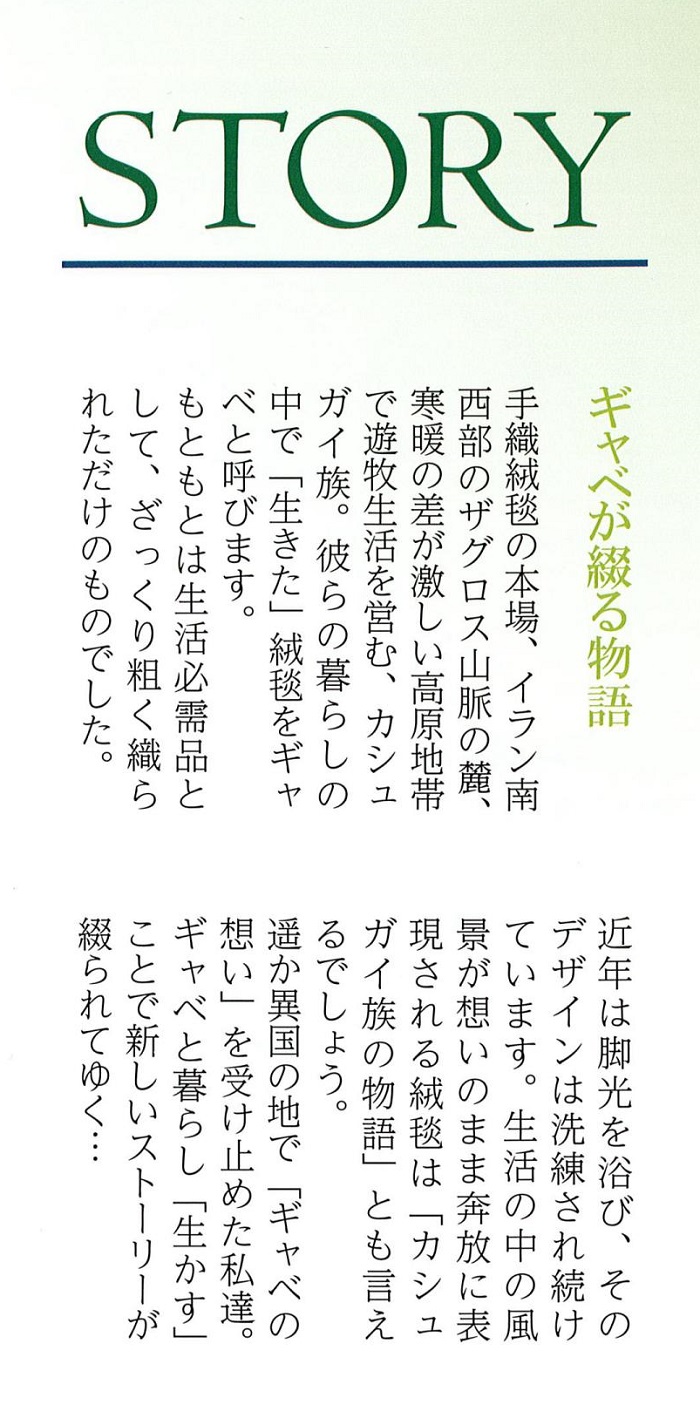 STORY
ギャベが綴る物語
手織絨毯の本場、イラン南
西部のザグロス山脈の麓、
寒暖の差が激しい高原地帯
で遊牧生活を営む、カシュ
ガイ族。彼らの暮らしの
中で「生きた」絨毯をギャ
ベと呼びます。
もともとは生活必需品と
して、ざっくり粗く織ら
れただけのものでした。
近年は脚光を浴び、その
デザインは洗練され続け
ています。生活の中の風
景が想いのまま奔放に表
現される絨毯は「カシュ
ガイ族の物語」とも言え
るでしょう。
遥か異国の地で「ギャベの
想い」を受け止めた私達。
ギャベと暮らし「生かす」
ことで新しいストーリーが
綴られてゆく…